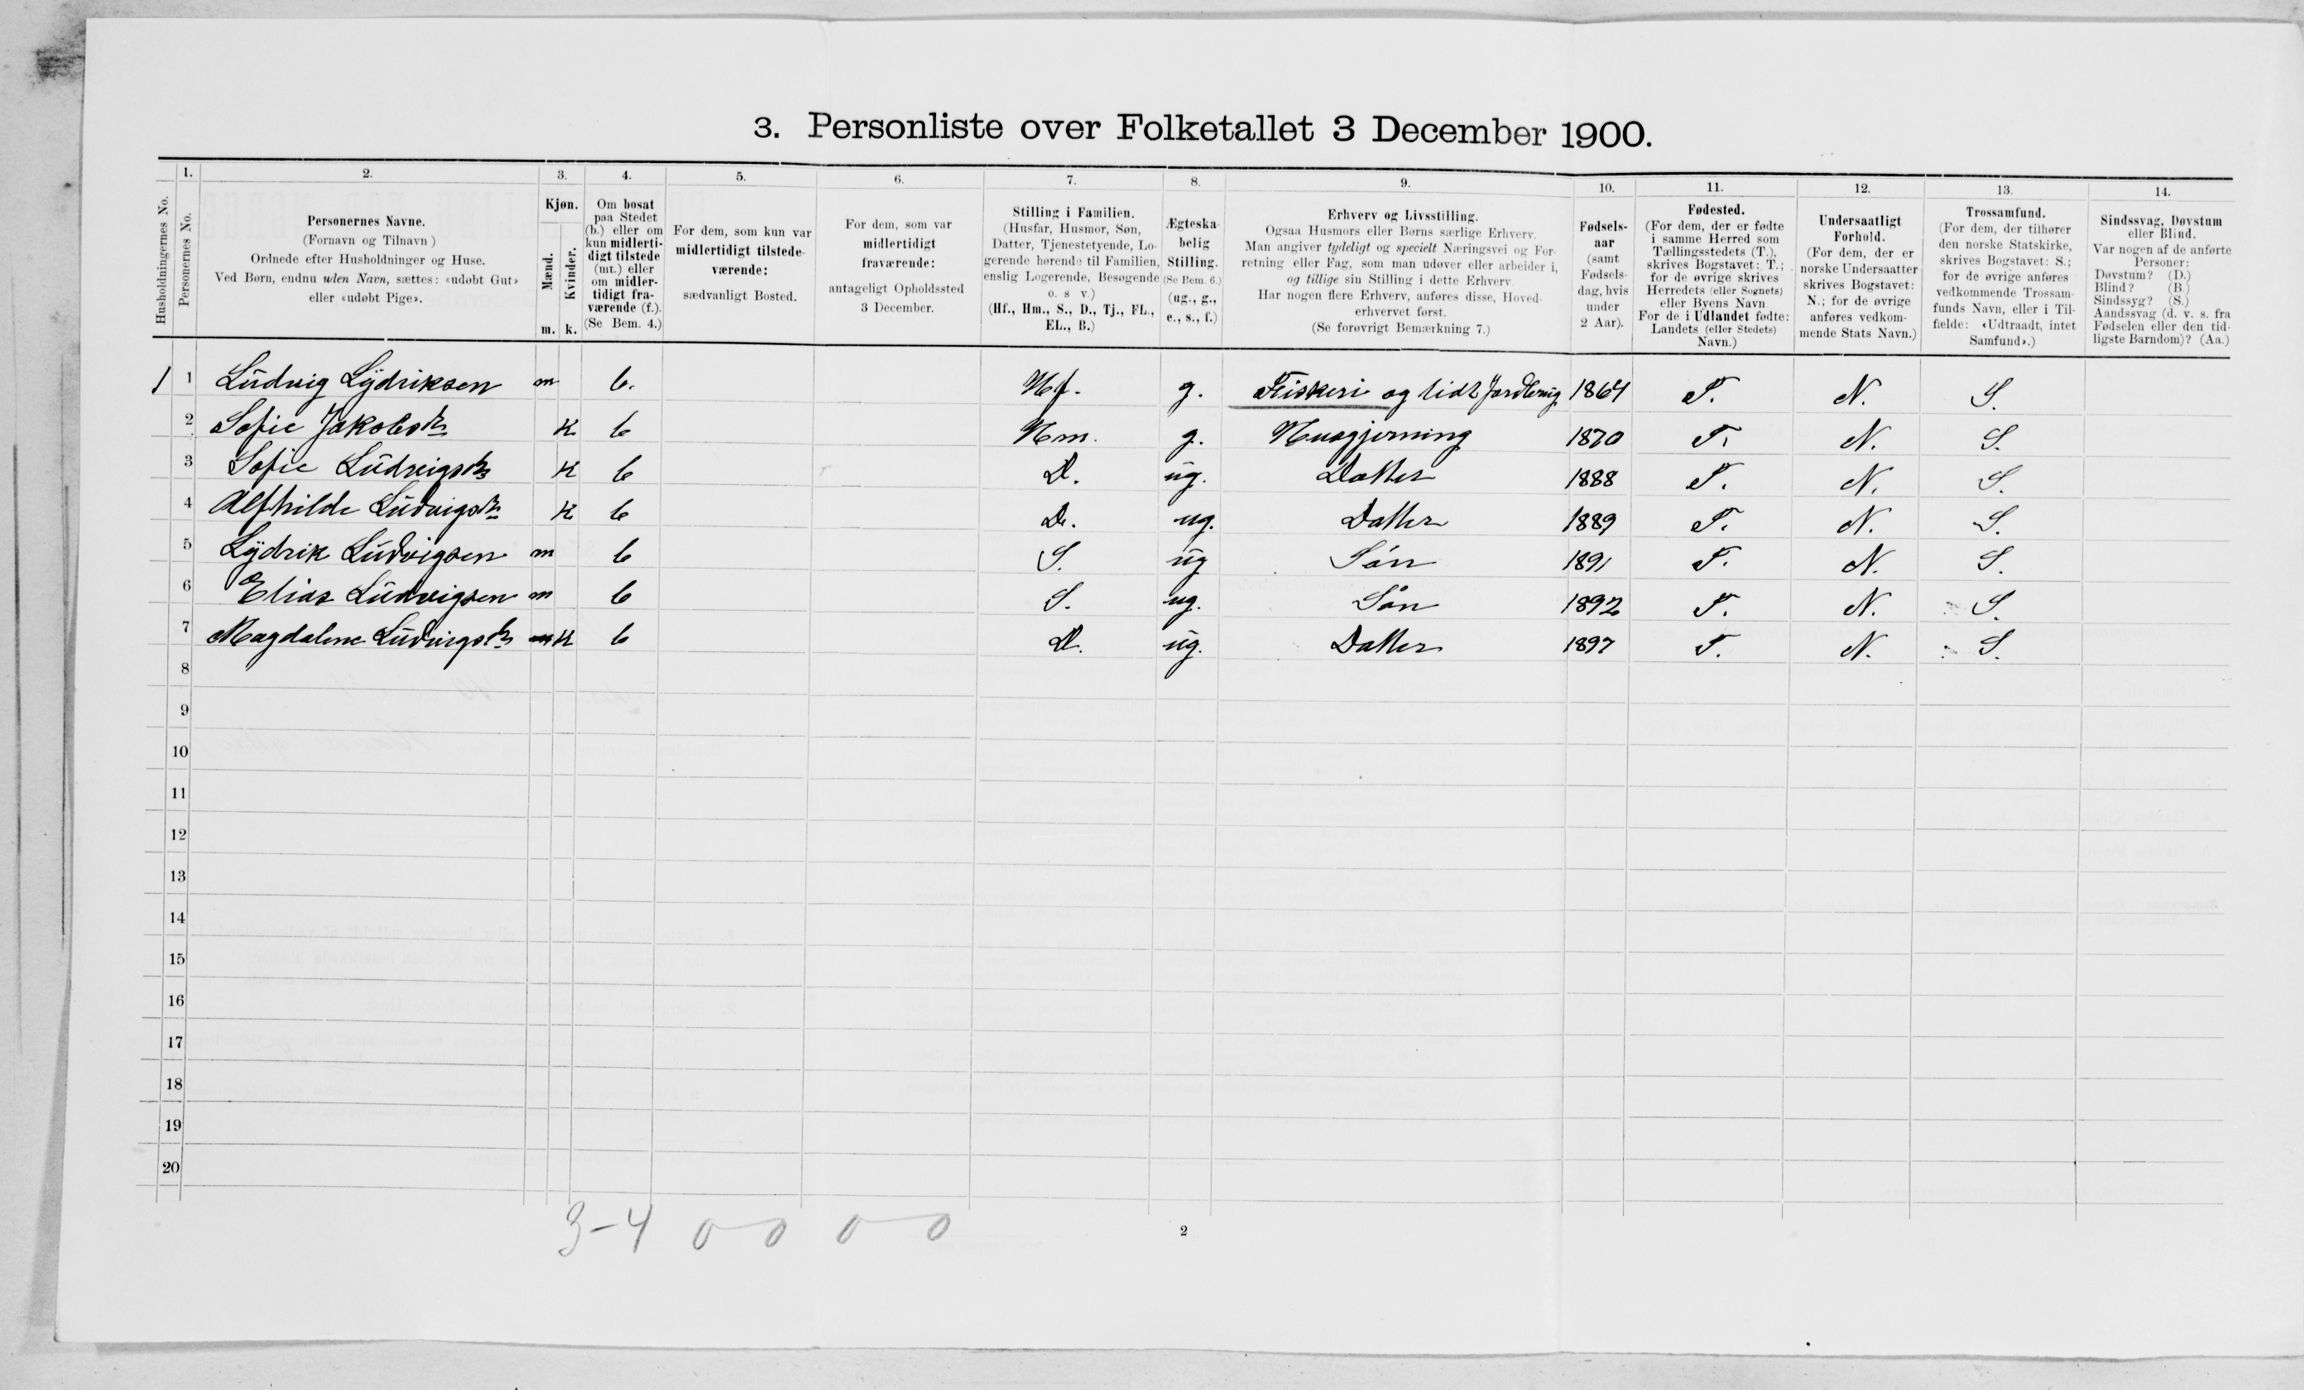 3. Personliste over Folketallet 3 December 1900.
Husholdningernes No.
1.
Personernes No.
2.
Personernes Navne.
(Fornavn og Tilnavn)
Ordnede efter Husholdninger og Huse.
Ved Børn, endnu uden Navn, sættes: «udøbt Gut»
eller «udøbt Pige».
3.
Kjøn.
Mænd.
Kvinder.
m. k.
4.
Om bosat
paa Stedet
(b.) eller om
kun midlerti-
digt tilstede
(mt.) eller
om midler-
tidigt fra-
værende (f.).
(Se Bem. 4.)
5.
For dem, som kun var
midlertidigt tilstede-
værende:
sædvanligt Bosted.
6.
For dem, som var
midlertidigt
fraværende:
antageligt Opholdssted
3 December.
7.
Stilling i Familien.
(Husfar, Husmor, Søn,
Datter, Tjenestetyende, Lo-
gerende hørende til Familien,
enslig Logerende, Besøgende
o. s. v.)
(Hf., Hm., S., D., Tj., FL.,
EL., B.)
8.
Ægteska-
belig
Stilling.
(Se Bem. 6.)
(ug., g.,
e., s., f.)
9.
Erhverv og Livsstilling.
Ogsaa Husmors eller Børns særlige Erhverv.
Man angiver tydeligt og specielt Næringsvei og For-
retning eller Fag, som man udøver eller arbeider i,
og tillige sin Stilling i dette Erhverv.
Har nogen flere Erhverv, anføres disse, Hoved-
erhvervet først.
(Se forøvrigt Bemærkning 7.)
10.
Fødsels-
aar
(samt
Fødsels-
dag, hvis
under
2 Aar).
11.
Fødested.
(For dem, der er fødte
i samme Herred som
Tællingsstedets (T.),
skrives Bogstavet: T.;
for de øvrige skrives
Herredets (eller Sognets)
eller Byens Navn.
For de i Udlandet fødte:
Landets (eller Stedets)
Navn.)
12.
Undersaatligt
Forhold.
(For dem, der er
norske Undersaatter
skrives Bogstavet:
N.; for de øvrige
anføres vedkom-
mende Stats Navn.)
13.
Trossamfund.
(For dem, der tilhører
den norske Statskirke,
skrives Bogstavet: S.;
for de øvrige anføres
vedkommende Trossam-
funds Navn, eller i Til-
fælde: «Udtraadt, intet
Samfund».)
14.
Sindssvag, Døvstum
eller Blind.
Var nogen af de anførte
Personer:
Døvstum? (D.)
Blind? (B.)
Sindssyg? (S.)
Aandssvag (d. v. s. fra
Fødselen eller den tid-
ligste Barndom)? (Aa.)
1 1 Ludvig Lydriksen m b. Hf. g. Fiskeri og lidt Jordbrug 1864 T. N. S.
2 Sofie Jakobsdtr K b Hm. g. Husgjerning 1870 T. N. S.
3 Sofie Ludvigsdtr K b D. ug. Datter 1888 T. N. S.
4 Alfhilde Ludvigsdtr K b D. ug. Datter 1889 T. N. S.
5 Lydrik Ludvigsen m b S. ug Søn 1891 T. N. S.
6 Elias Ludvigsen m b S. ug. Søn 1892 T. N. S.
7 Magdalene Ludvigsdtr m K b D. ug. Datter 1897 T. N. S.
8
9
10
11
12
13
14
15
16
17
18
19
20
3-4 0 0 0 0
2